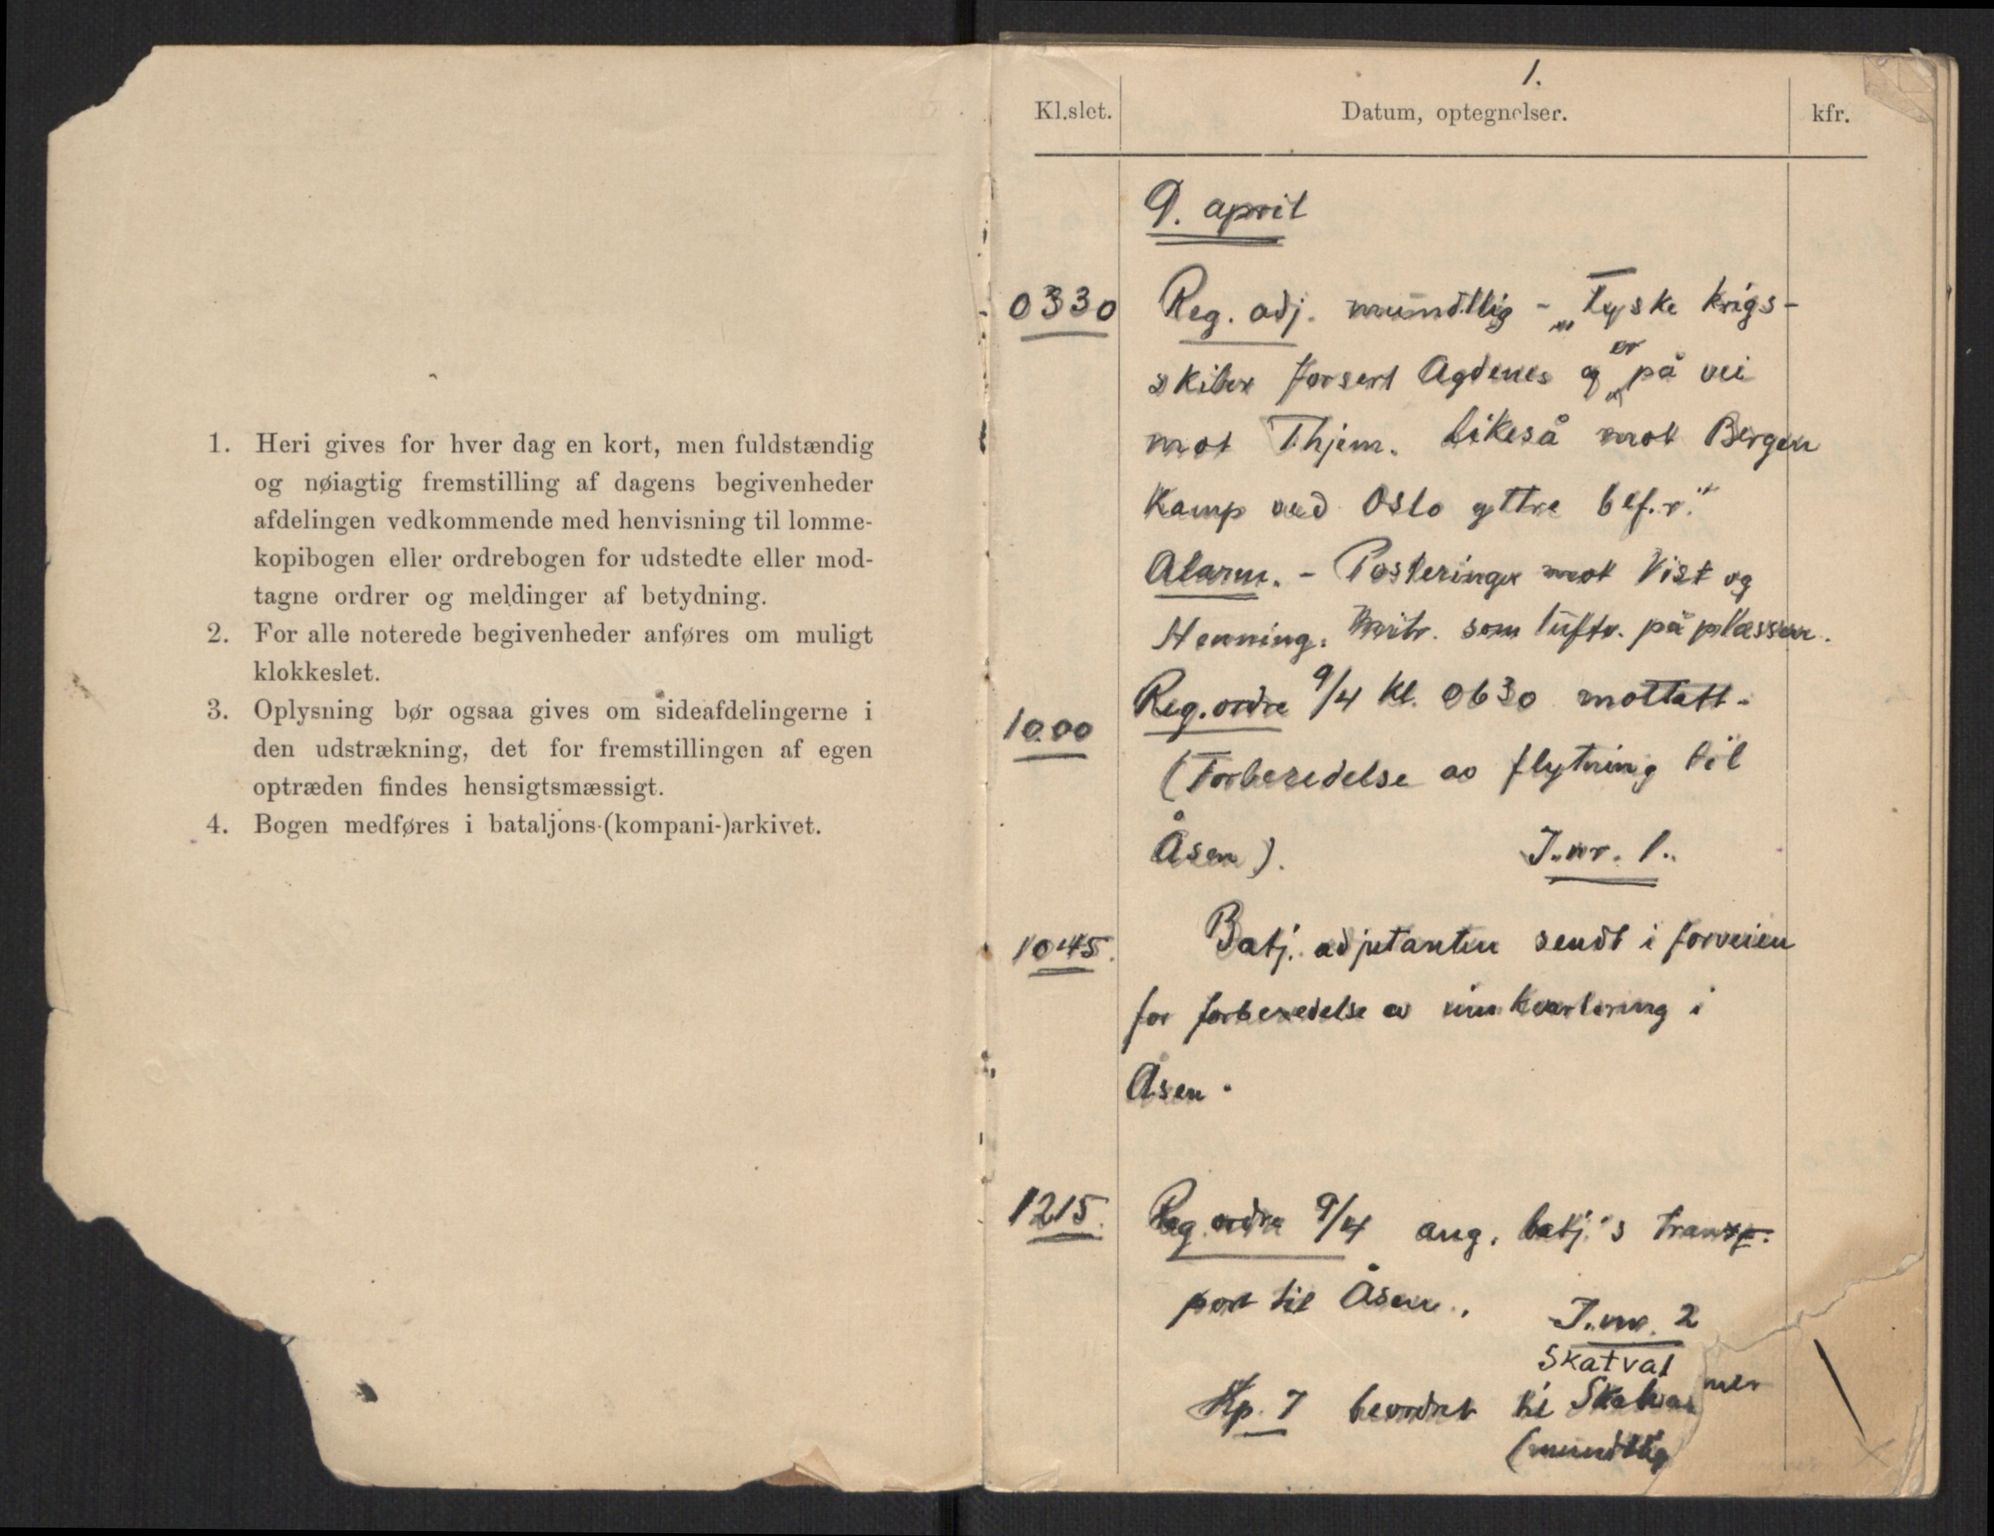 1. Heri gives for hver dag en kort, men fuldstændig
og nøiagtig fremstilling af dagens begivenheder
afdelingen vedkommende med henvisning til lomme-
kopibogen eller ordrebogen for udstedte eller mod-
tagne ordrer og meldinger af betydning.
2. For alle noterede begivenheder anføres om muligt
klokkeslet.
3. Oplysning bør ogsaa gives om sideafdelingerne i
den udstrækning, det for fremstillingen af egen
optræden findes hensigtsmæssigt.
4. Bogen medføres i bataljons-(kompani-)arkivet.
1.
Kl.slet. Datum, optegnelser. kfr.
9. april
0330 Reg. adj. mundtlig - „Tyske krigs-
skiber forsert Agdenes og er på vei
mot Thjem. likeså mot Bergen
Kamp ved Oslo yttre bef.r."
Alarm. - Posteringer mot Vist og
Henning. Mitr. som luftv. på plassen.
Reg. ordre 9/4 kl. 0630 mottatt.
1000
(Forberedelse av flytning til
Åsen). J.nr. 1.
1045. Batj. adjutanten sendt i forveien
for forberedelse av innkvartering i
Åsen.
1215. Reg. ordre 9/4 ang. batj.'s transp.
port til Åsen. J.nr. 2
Skatval
Kp. 7 beordret til Skatval
(mundtlig